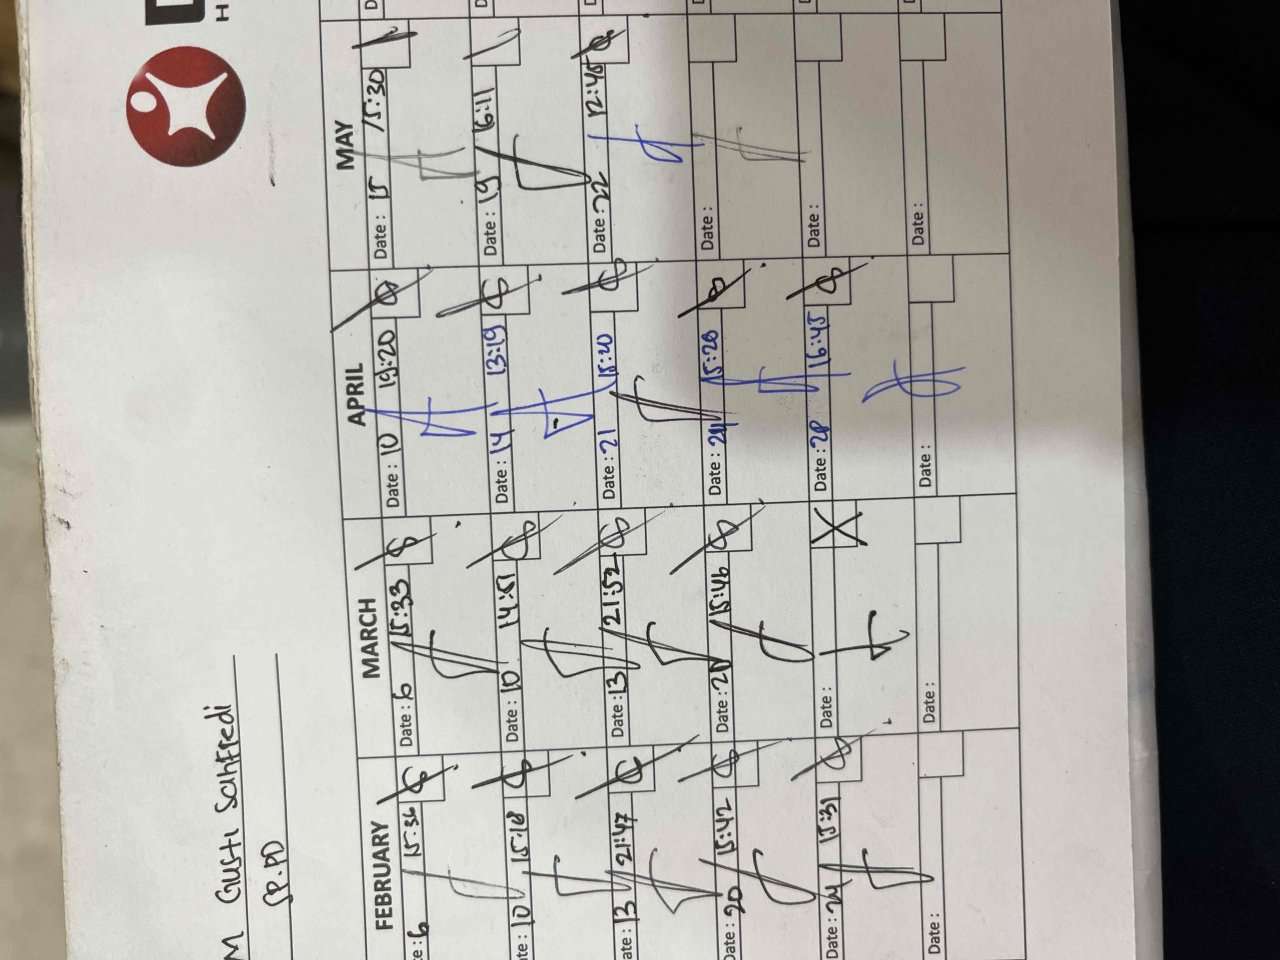 M Gusti Sahfredi
SP.PD
FEBRUARY MARCH APRIL MAY
te: 6 15:36
Date: 6 15:33
Date: 10 19:20
Date: 15 15:30
te: 10 15:18
Date: 10 14:51
Date: 14 13:19
Date: 19 16:11
Date: 13 21:47
Date: 13 21:52
Date: 21 15:20
Date: 22 12:45
Date: 20 15:42
Date: 20 15:46
Date: 24 15:28
Date:
Date: 24 15:31
Date:
Date: 28 16:45
Date:
Date:
Date:
Date:
Date: